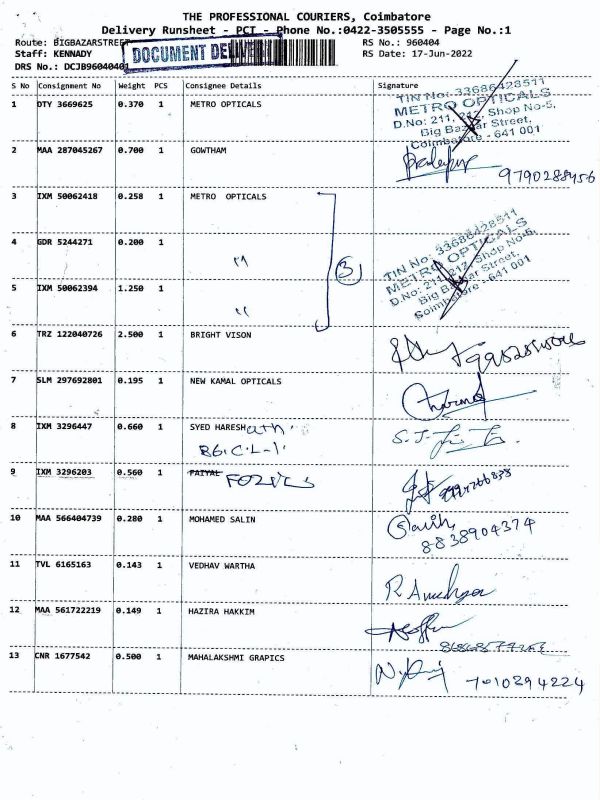 THE PROFESSIONAL COURIERS, Coimbatore
Delivery Runsheet - PCT - Phone No.:0422-3505555 - Page No.:1
Route: BIGBAZARSTREET RS No.: 960404
Staff: KENNADY DOCUMENT RS Date: 17-Jun-2022
DRS No.: DCJB96040401
S No Consignment No Weight PCS Consignee Details Signature
1 DTY 3669625 0.370 1 METRO OPTICALS
TIN No: 33686428511
METRO OPTICALS
D.No: 211, 212, Shop No-5,
Big Bazaar Street,
Coimbatore - 641 001
2 MAA 287045267 0.700 1 GOWTHAM
9790288456
3 IXM 50062418 0.258 1 METRO OPTICALS
4 GDR 5244271 0.200 1 "
3
5 IXM 50062394 1.250 1 "
TIN No: 33686428511
METRO OPTICALS
D.No: 211, 212, Shop No-5,
Big Bazaar Street,
Coimbatore - 641 001
6 TRZ 122040726 2.500 1 BRIGHT VISON
7 SLM 297692801 0.195 1 NEW KAMAL OPTICALS
8 IXM 3296447 0.660 1 SYED HARESH ath.
9 IXM 3296203 0.560 1 FAIYAL
10 MAA 566404739 0.280 1 MOHAMED SALIN
8838904374
11 TVL 6165163 0.143 1 VEDHAV WARTHA
12 MAA 561722219 0.149 1 HAZIRA HAKKIM
13 CNR 1677542 0.500 1 MAHALAKSHMI GRAPICS
7010294224